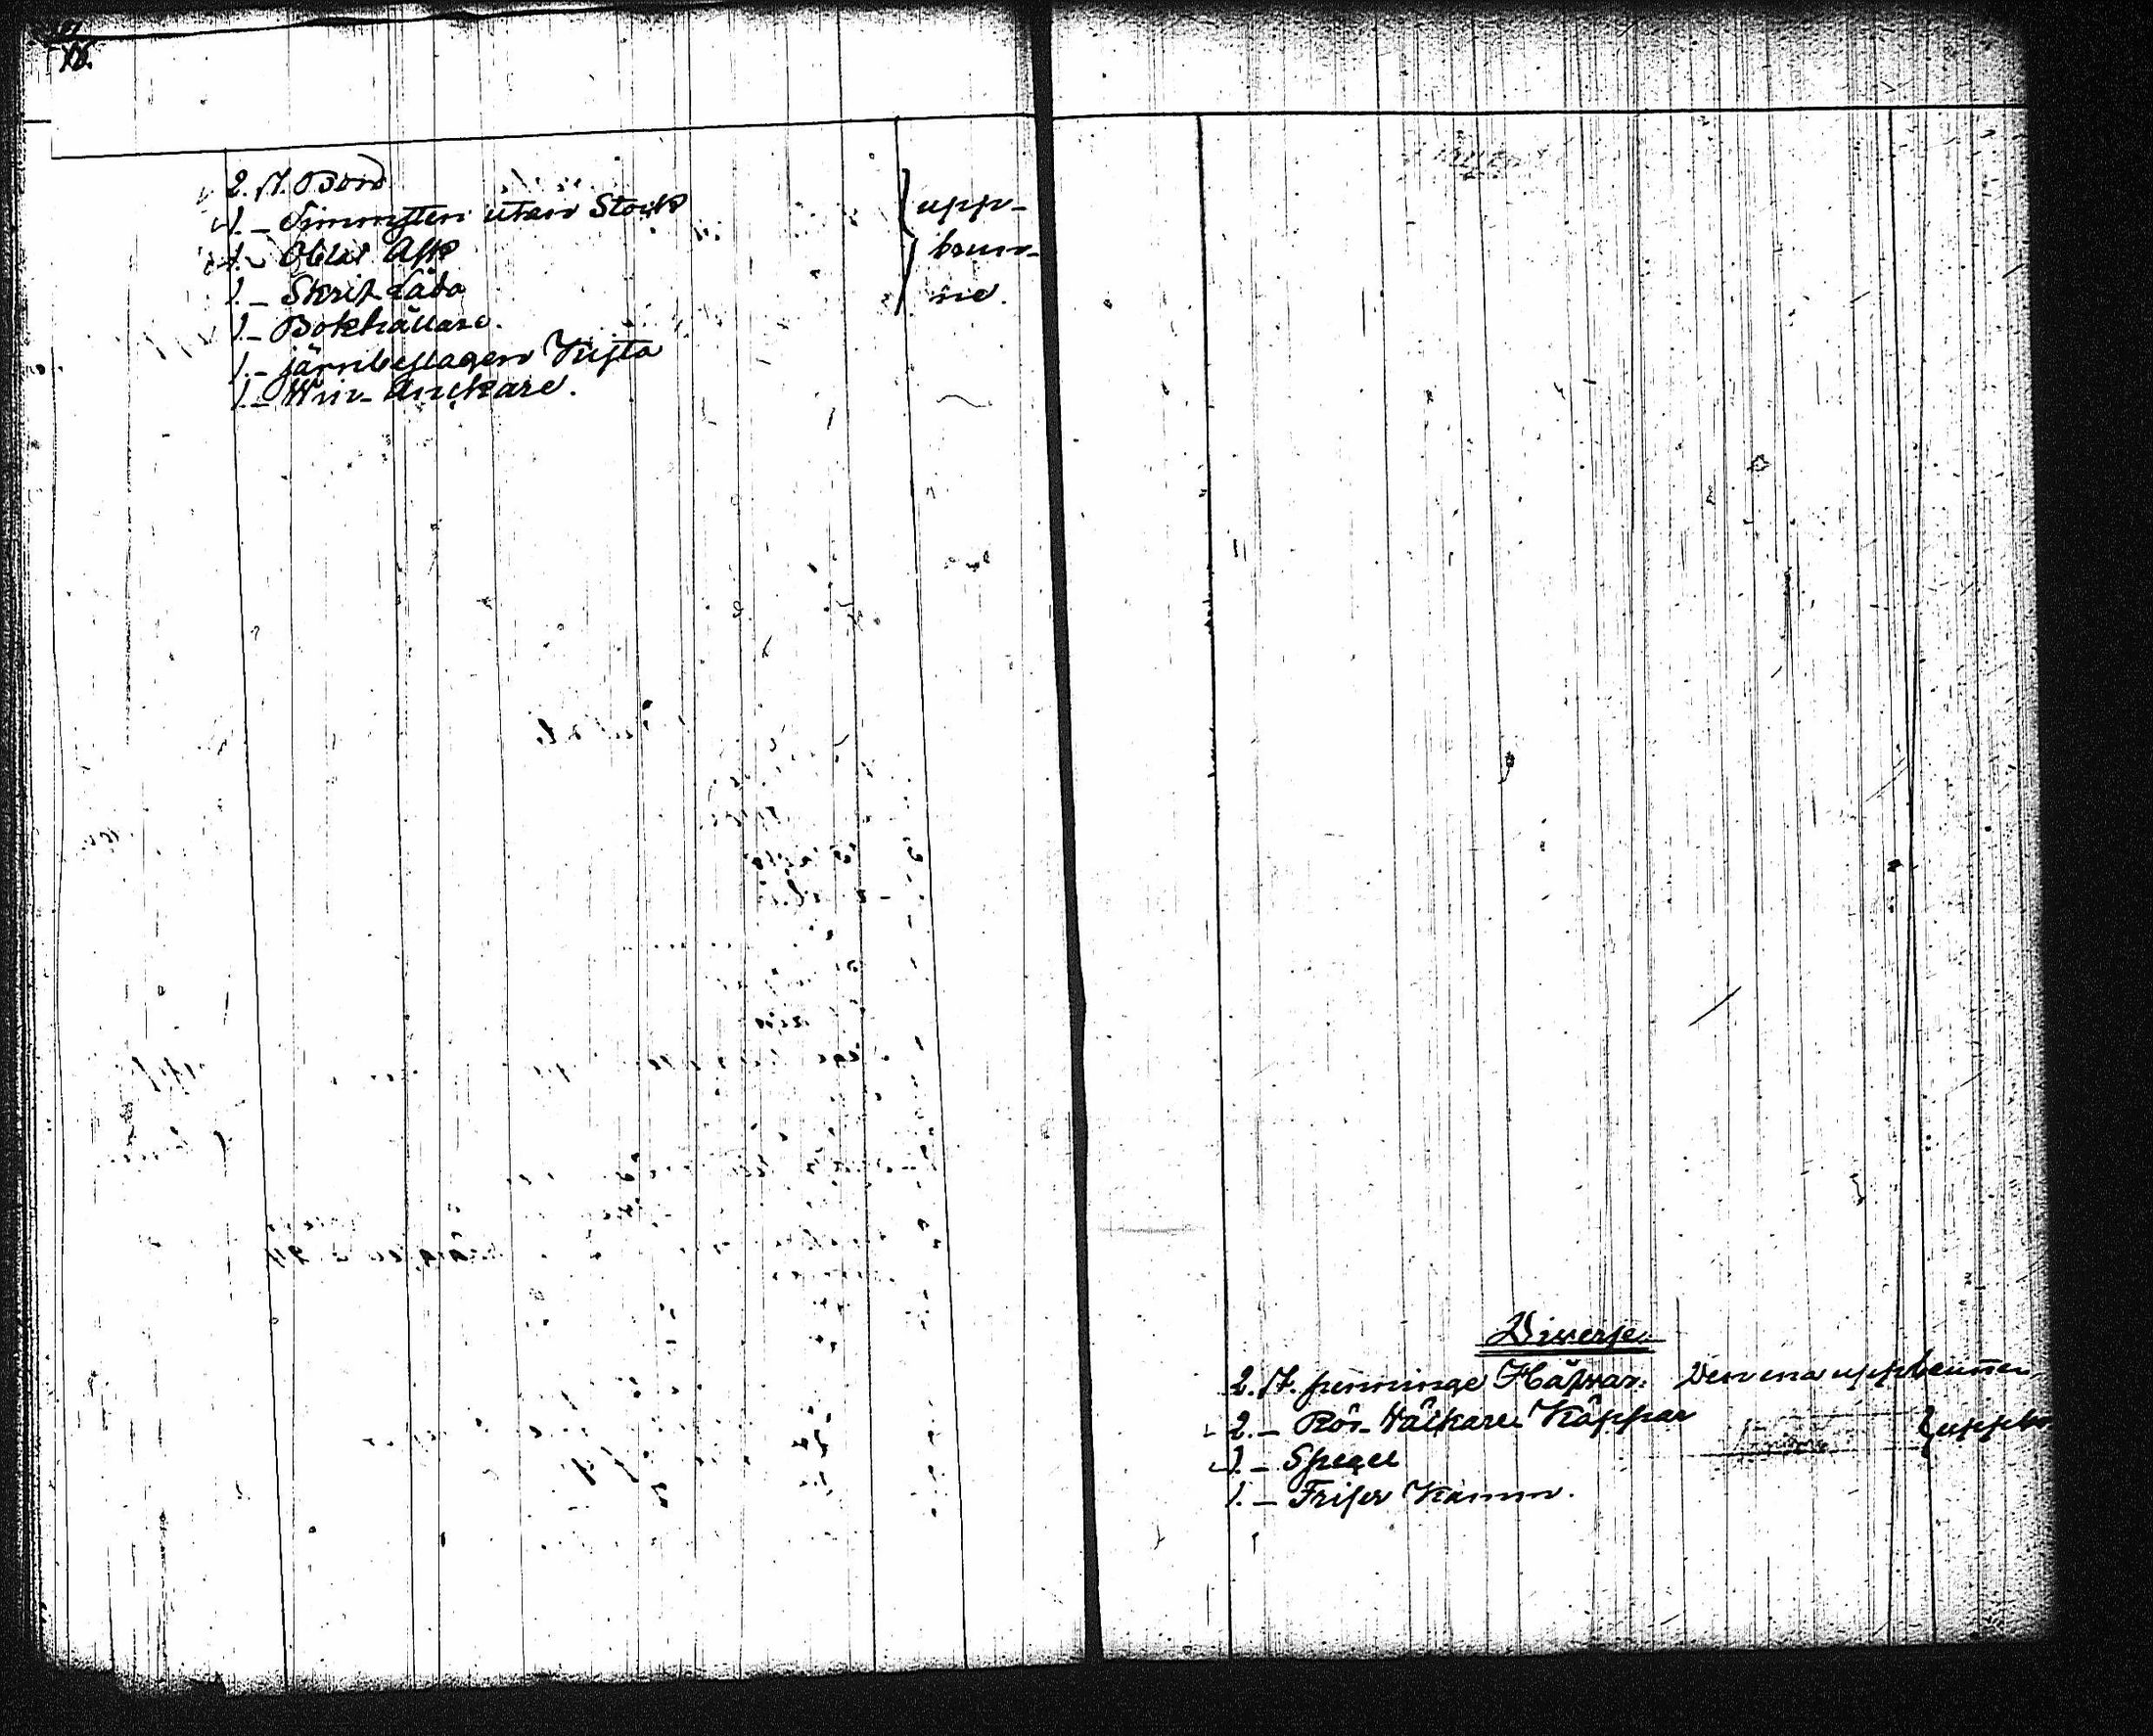 2. st. Bord
1. - Timmsten utan Stock
1. - Oblat Ask
1. - Skrif Låda
1. - Bokhållare.
1. - järnbeslagen Kista
1. - Win-Anckare.
upp-
brun-
ne.
Diverse.
2. st. penninge Håfvar. Den ena uppbrunnen
2. - Rör-Käppar
1. - Spegel
1. - Friser Kamm.
uppbr